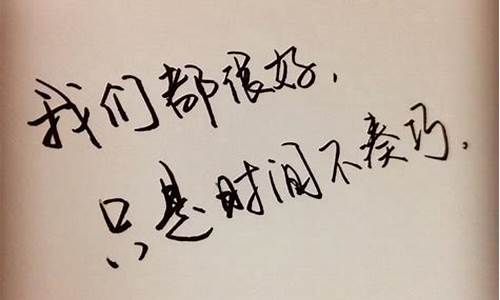 我们都很好,
只是时间不凑巧,